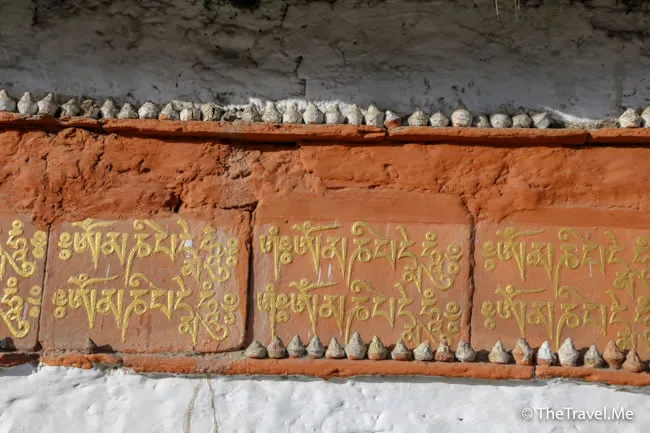 ཧཱུྃ
ཧཱུྃ
ཨོཾ་མ་ཎི་པདྨེ་ཧཱུྃ
ཨོཾ་མ་ཎི་པདྨེ་ཧཱུྃ
ཨོཾ་མ་ཎི་པདྨེ་ཧཱུྃ
ཨོཾ་མ་ཎི་པདྨེ་ཧཱུྃ
ཨོཾ་མ་ཎི་པདྨེ་ཧཱུྃ
ཨོཾ་མ་ཎི་པདྨེ་ཧཱུྃ
©TheTravel.Me